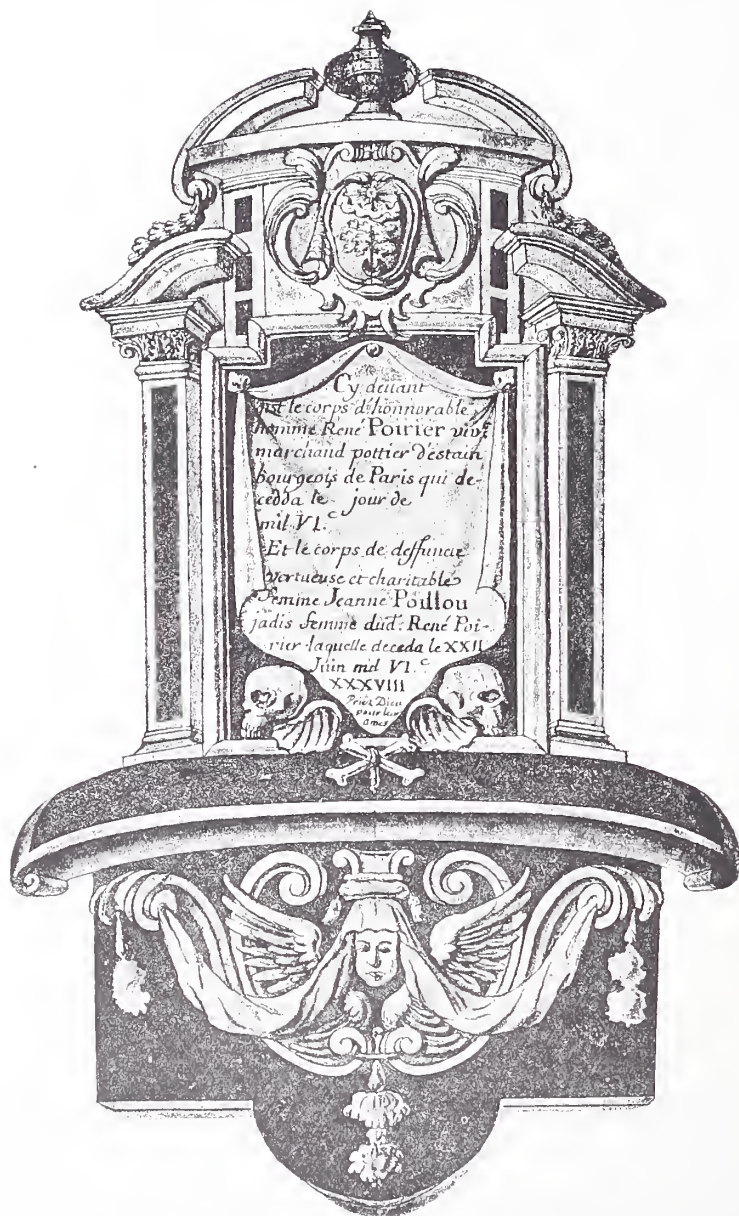 Cy deuant
gist le corps d'honnorable
homme René Poirier viv.t
marchand pottier d'estain
bourgeois de Paris qui de-
cedda le jour de
mil VI.c
Et le corps de deffuncte
vertueuse et charitable
femme Jeanne Poillou
jadis femme dud: René Poi-
rier laquelle deceda le XXII
Juin mil VI.c
XXXVIII
Priez Dieu
pour les
ames